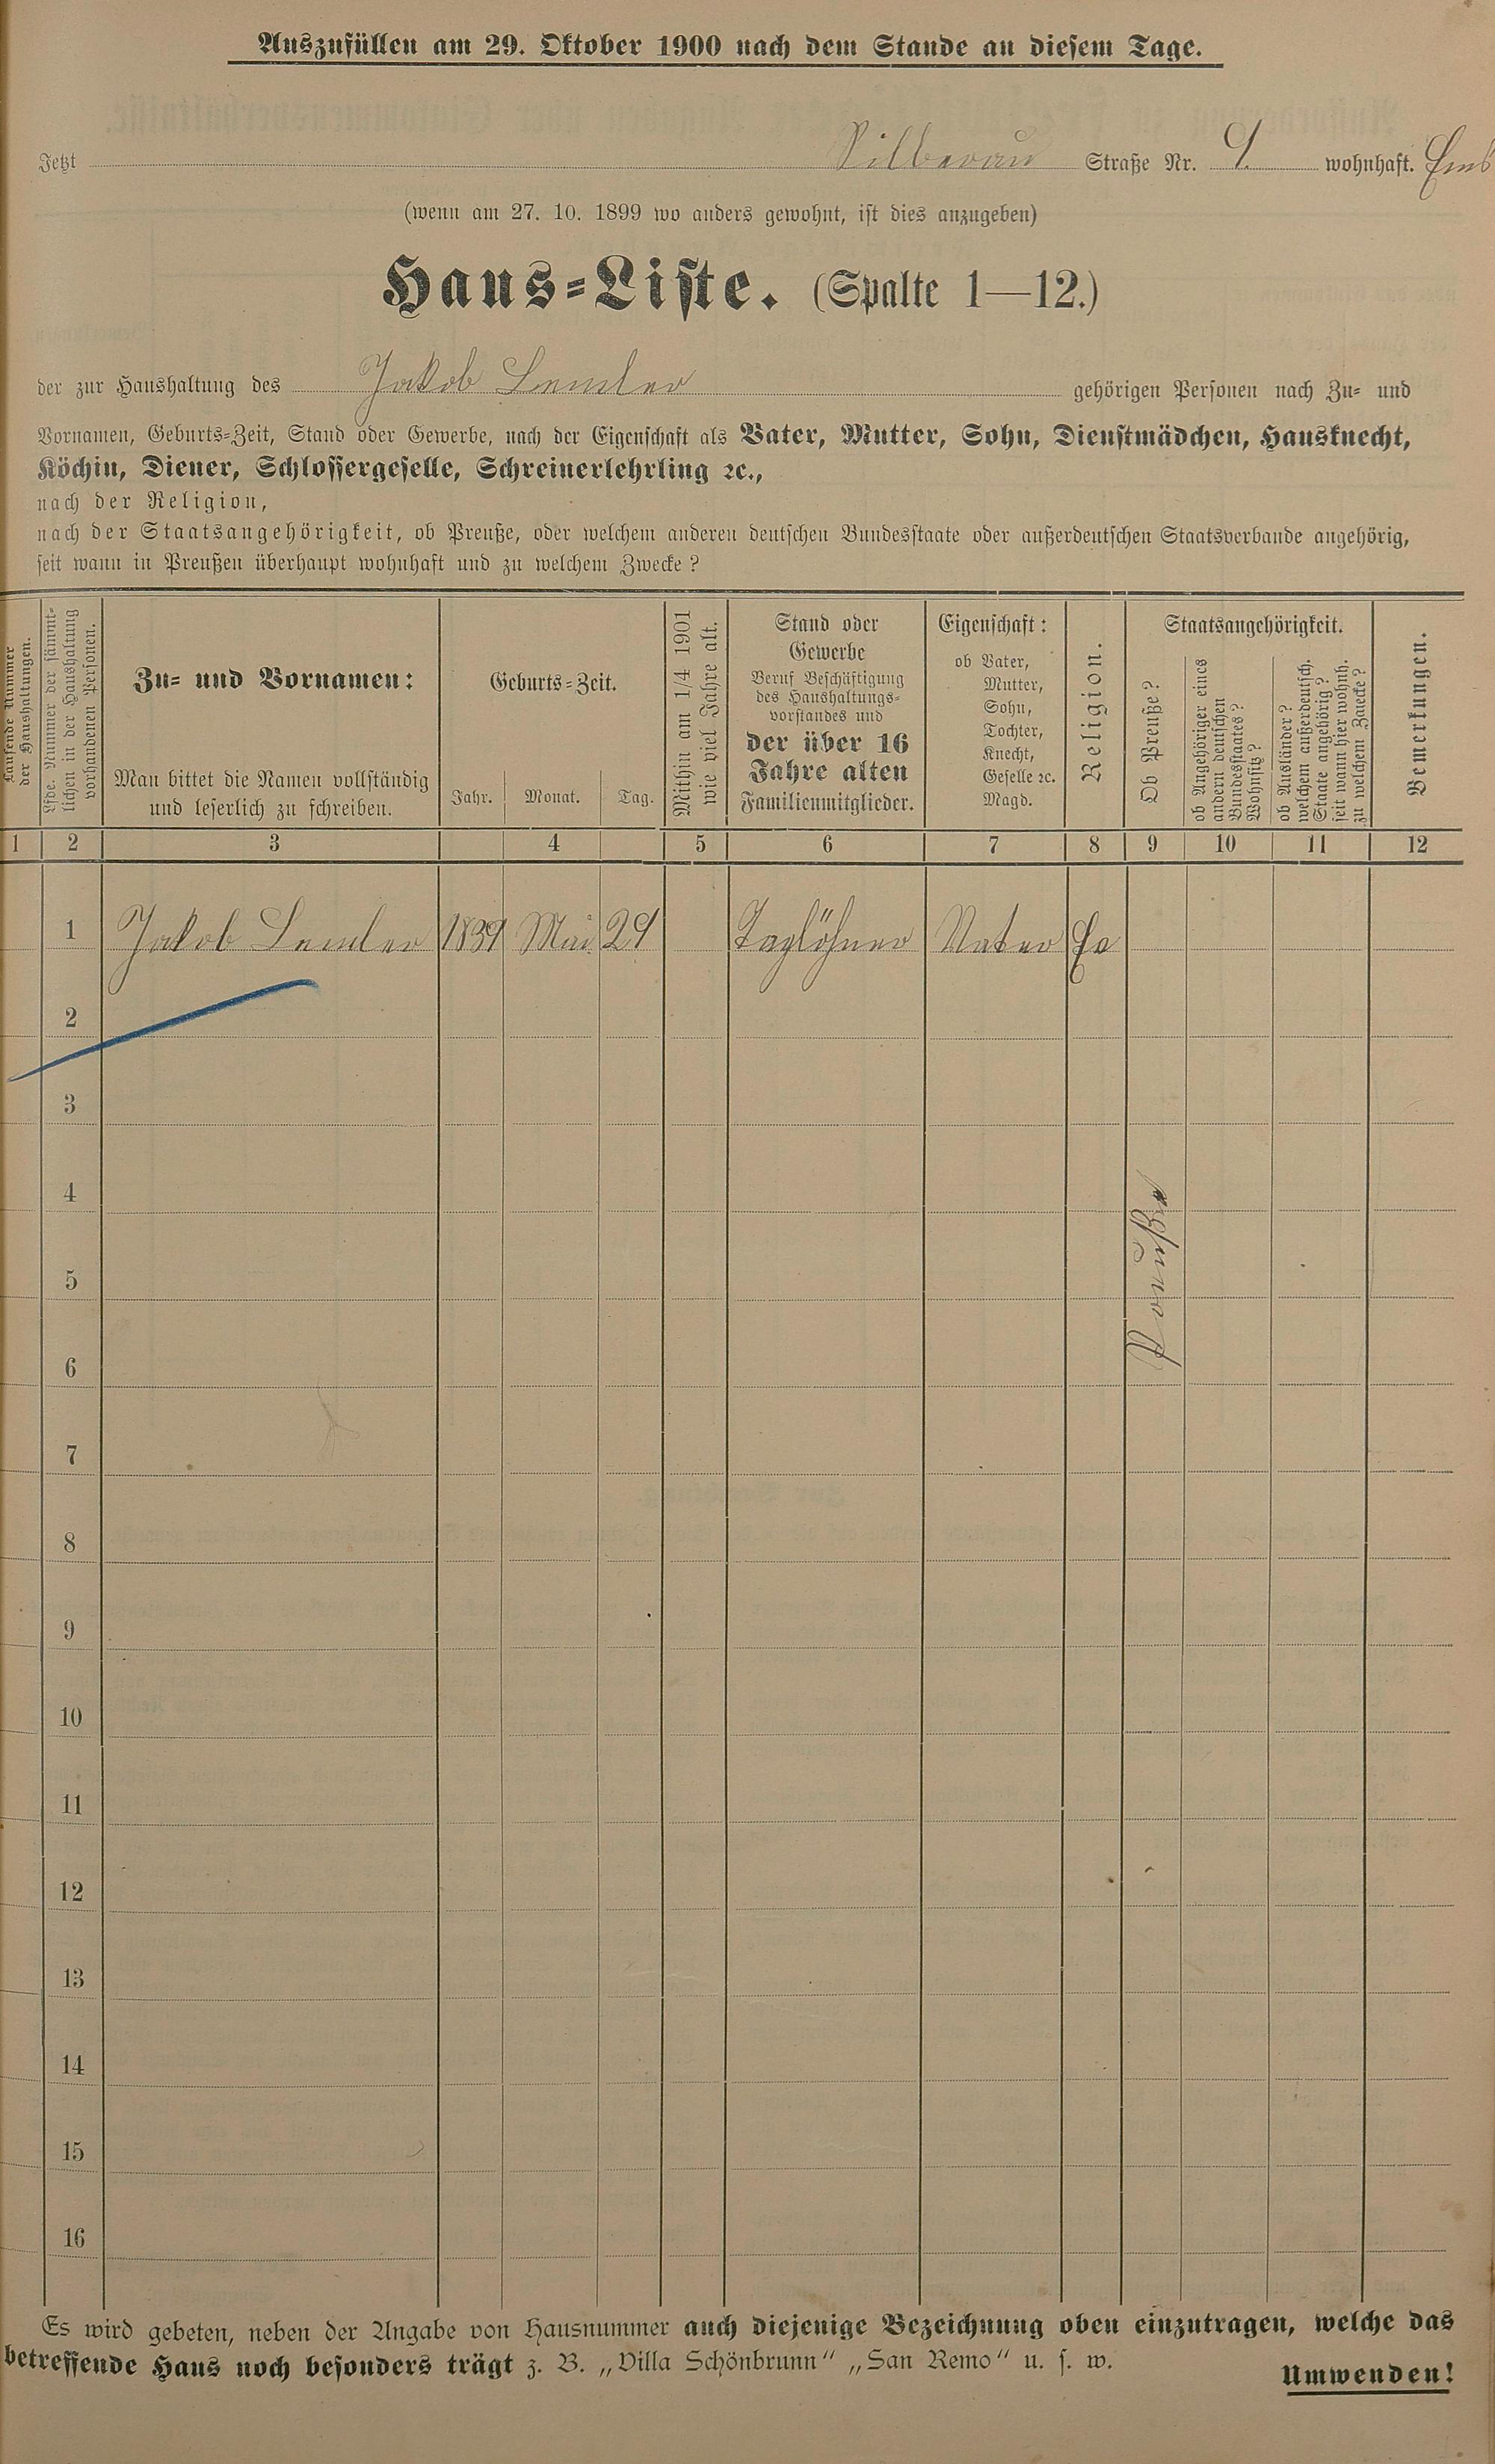 Auszufüllen am 29. Oktober 1900 nach dem Stande an diesem Tage.
Jetzt Silberau Straße Nr. 9. wohnhaft. Ems
(wenn am 27. 10. 1899 wo anders gewohnt, ist dies anzugeben)
Haus-Liste. (Spalte 1—12.)
der zur Haushaltung des Jakob Lemler gehörigen Personen nach Zu- und
Vornamen, Geburts-Zeit, Stand oder Gewerbe, nach der Eigenschaft als Vater, Mutter, Sohn, Dienstmädchen, Hausknecht,
Köchin, Diener, Schlossergeselle, Schreinerlehrling ꝛc.,
nach der Religion,
nach der Staatsangehörigkeit, ob Preuße, oder welchem anderen deutschen Bundesstaate oder außerdeutschen Staatsverbande angehörig,
seit wann in Preußen überhaupt wohnhaft und zu welchem Zwecke?
Laufende Nummer
der Haushaltungen.
Lfde. Nummer der sämmt-
lichen in der Haushaltung
vorhandenen Personen.
Zu- und Vornamen:
Man bittet die Namen vollständig
und leserlich zu schreiben.
Geburts-Zeit.
Jahr. Monat. Tag.
Mithin am 1/4 1901
wie viel Jahre alt.
Stand oder
Gewerbe
Beruf Beschäftigung
des Haushaltungs-
vorstandes und
der über 16
Jahre alten
Familienmitglieder.
Eigenschaft:
ob Vater,
Mutter,
Sohn,
Tochter,
Knecht,
Geselle ꝛc.
Magd.
Religion.
Staatsangehörigkeit.
Ob Preuße?
ob Angehöriger eines
andern deutschen
Bundesstaates?
Wohnsitz?
ob Ausländer?
welchem außerdeutsch.
Staate angehörig?
seit wann hier wohnh.
zu welchem Zwecke?
Bemerkungen.
1 2 3 4 5 6 7 8 9 10 11 12
1 Jakob Lemler 1839 Mai 29 Taglöhner Vater Ev
2
3
4
Preuße
5
6
7
8
9
10
11
12
13
14
15
16
Es wird gebeten, neben der Angabe von Hausnummer auch diejenige Bezeichnung oben einzutragen, welche das
betreffende Haus noch besonders trägt z. B. „Villa Schönbrunn“ „San Remo“ u. s. w.
Umwenden!